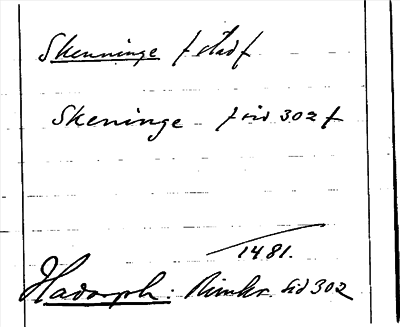 Skenninge f stad f
Skeninge f sid 302 f
1481.
Hadorph: Rimkr. sid 302